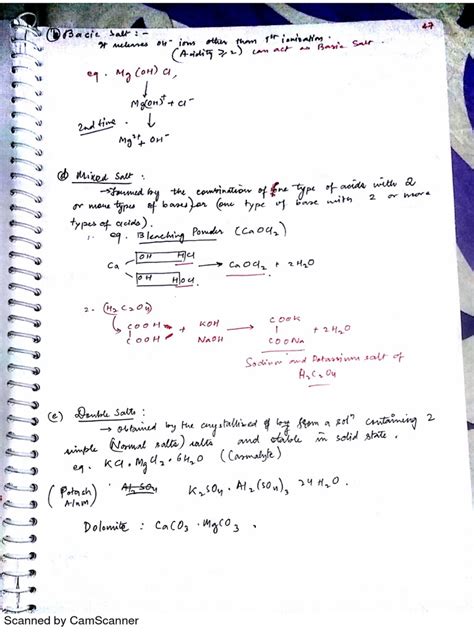 47
(b) Basic Salt : -
It releases OH⁻ ions other than 1st ionisation.
(Acidity ≥ 2) can act as Basic Salt.
eg. Mg(OH)Cl,
↓
Mg(OH)⁺ + Cl⁻
2nd time. ↓
Mg²⁺ + OH⁻
(d) Mixed Salt :
→ formed by the combination of one type of acids with 2
or more types of bases) or (one type of base with 2 or more
types of acids).
eg. Bleaching Powder (CaOCl₂)
OH H Cl
Ca → CaOCl₂ + 2H₂O
OH H OCl
2. (H₂C₂O₄)
COOH + KOH → COOK + 2H₂O
COOH NaOH COONa
Sodium and Potassium salt of
H₂C₂O₄
(e) Double Salts :
→ obtained by the crystallized of from a solⁿ containing 2
simple (Normal salts) salts and stable in solid state.
eg. KCl. MgCl₂. 6H₂O (Carnalyte)
(Potash Alam) K₂SO₄. Al₂(SO₄)₃ 24H₂O.
Dolomite : CaCO₃ . MgCO₃ .
Scanned by CamScanner